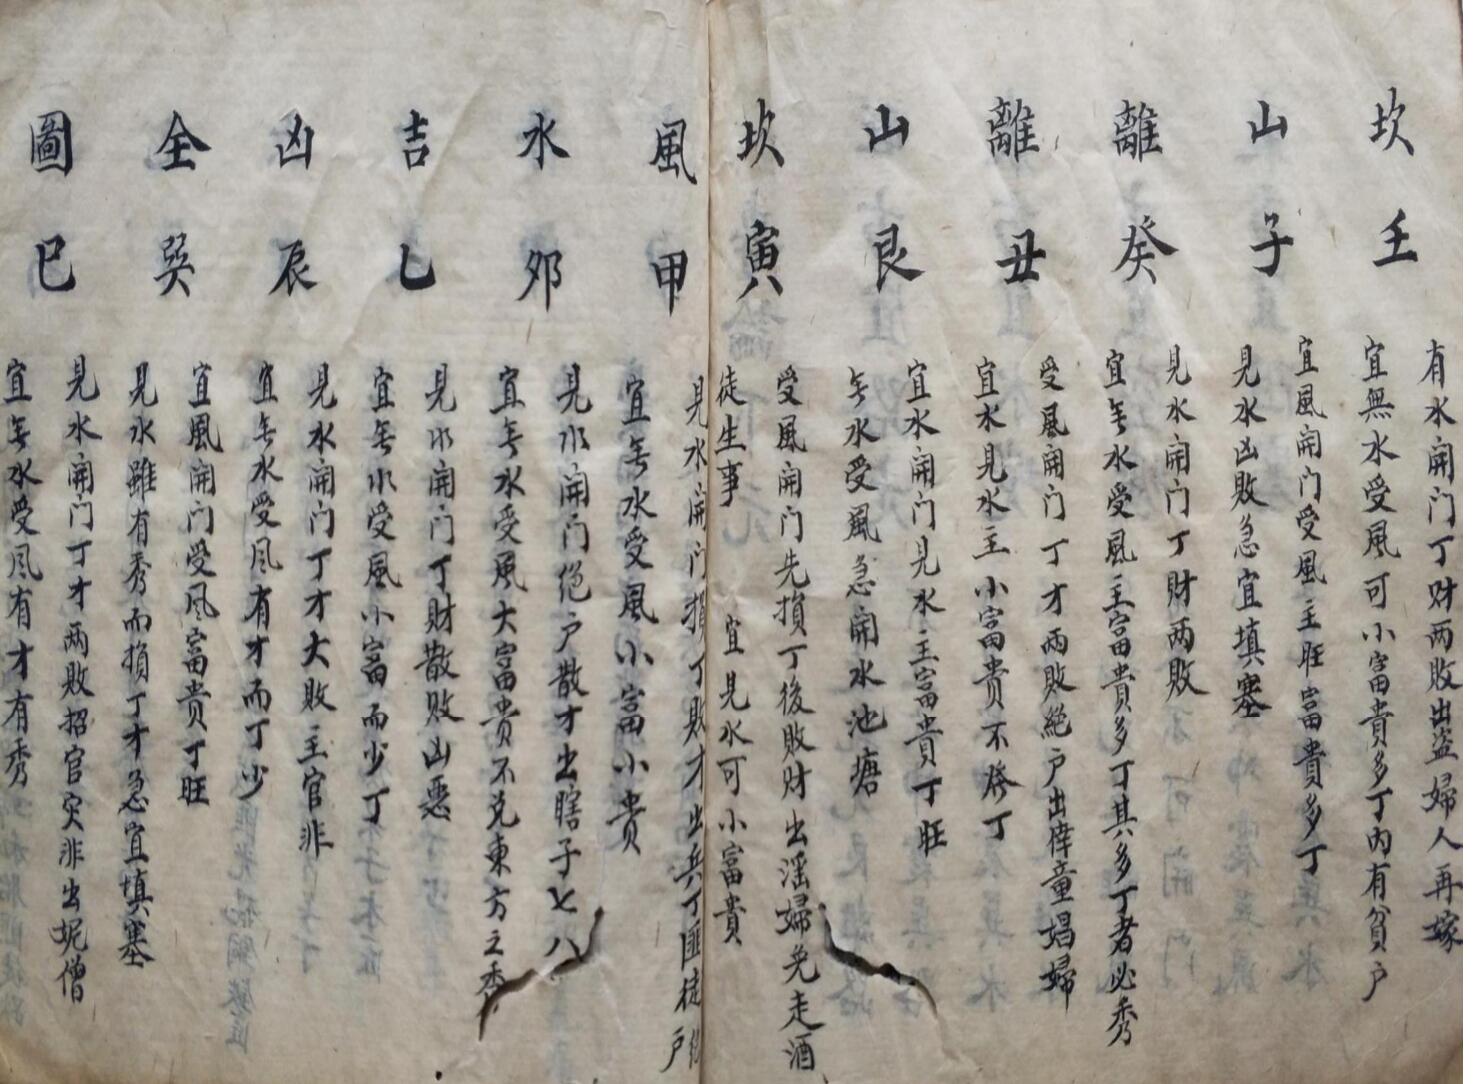 坎山離離山坎風水吉凶全圖
壬子癸丑艮寅甲卯乙辰巽巳
有水開门丁财两敗出盗婦人再嫁
宜無水受風可小富貴多丁内有貧户
宜風開门受風主旺富貴多丁
見水凶敗急宜填塞
見水開门丁財两敗
宜無水受風主富貴多丁其多丁者必秀
受風開门丁才两敗絶户出倖童娼婦
宜水見水主小富贵不勝丁
宜水開门見水主富貴丁旺
無水受風急開水池塘
受風開门先損丁後敗財出淫婦免走酒
徒生事 宜見水可小富貴
見水開门損丁敗才出兵丁匪徒户绝
宜無水受風小富小贵
見水開门绝户散才出瞎子七八
宜無水受風大富貴不兑東方之秀
見水開门丁財散敗凶惡
宜無水受風小富而少丁
見水開门丁才大敗主官非
宜無水受风有才而丁少
宜風開门受风富貴丁旺
見水雖有秀而損丁才急宜填塞
見水開门丁才两敗招官灾非出妮僧
宜無水受风有才有秀